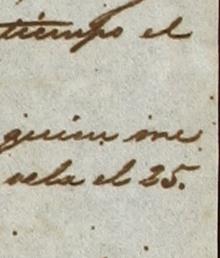 tiempo el
quien me
vela el 25.